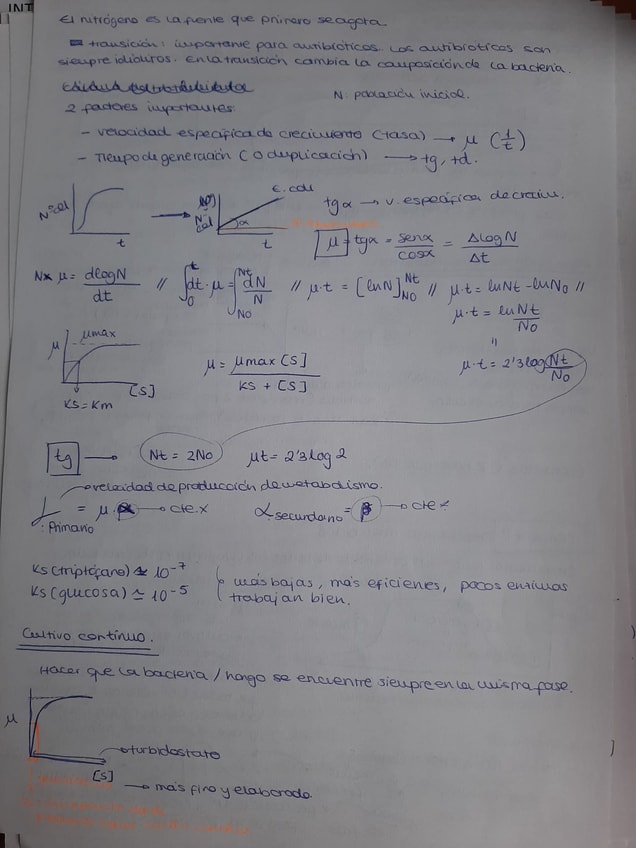 INT
El nitrógeno es la fuente que primero se agota
transición: importante para antibióticos. Los antibióticos son
siempre idiolitos. En la transición cambia la composición de la bacteria.
N: población inicial.
2 factores importantes:
- velocidad específica de crecimiento (tasa) → μ (1/t)
- Tiempo de generación (o duplicación) → tg, td.
Nº cel
t
E. coli
α
t
tg α → v. específica de crecim.
μ = tgα = senα/cosα = ΔlogN/Δt
μ = dlogN/dt // ∫₀ᵗ dt · μ = ∫_{No}^{Nt} dN/N // μ·t = [lnN]_{No}^{Nt} // μ·t = lnNt - lnNo //
μ·t = ln Nt/No
"
μ·t = 2'3 log Nt/No
μ
μmax
[S]
Ks = Km
μ = μmax [S] / Ks + [S]
tg → Nt = 2No μt = 2'3 log 2
velocidad de producción de metabolismo.
primario = μ · → cte.
α secundario = β → cte
Ks (triptófano) ≃ 10⁻⁷
Ks (glucosa) ≃ 10⁻⁵
más bajas, más eficientes, pocos enzimas
trabajan bien.
Cultivo continuo.
Hacer que la bacteria / hongo se encuentre siempre en la misma fase.
μ
turbidostato
[S]
→ más fino y elaborado.